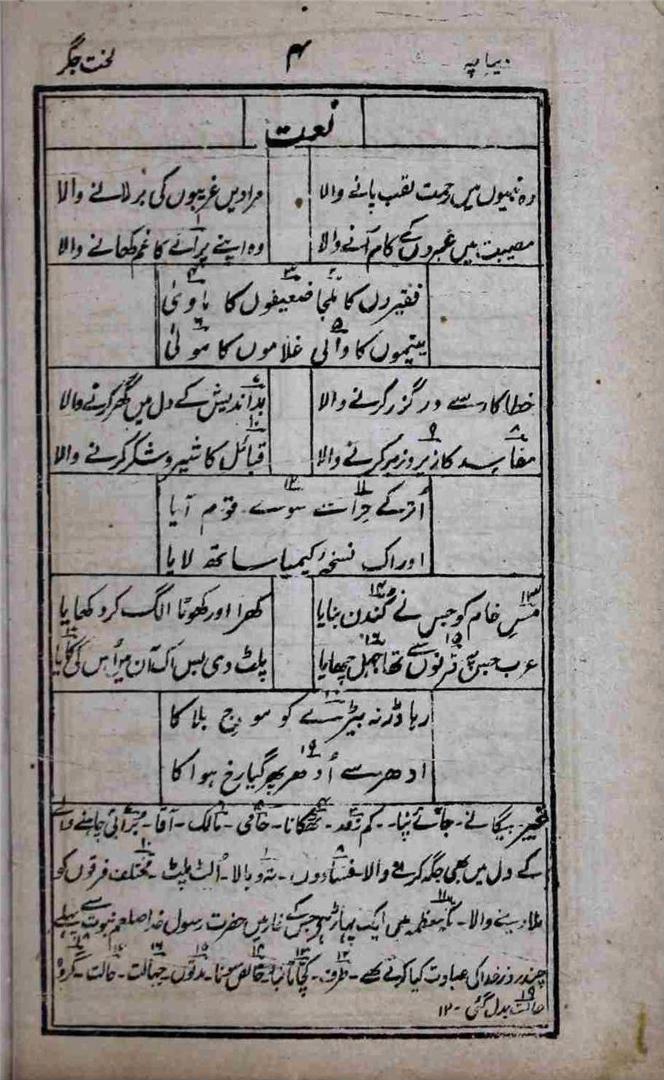 دیباچہ ۴ لخت جگر
نعت
وہ نبیوں میں رحمت لقب پانے والا مرادیں غریبوں کی بر لانے والا
مصیبت میں غیروں کے کام آنے والا وہ اپنے پرائے کا غم کھانے والا
فقیروں کا ملجا ضعیفوں کا ماویٰ
یتیموں کا والی غلاموں کا مولیٰ
خطا کار سے درگزر کرنے والا بد اندیش کے دل میں گھر کرنے والا
مفاسد کا زیر و زبر کرنے والا قبائل کا شیر و شکر کرنے والا
اتر کے حرا سے سوے قوم آیا
اور اک نسخہ کیمیا ساتھ لایا
مس خام کو جس نے کندن بنایا کھرا اور کھوٹا الگ کر دکھایا
عرب جس پہ قرنوں سے تھا جہل چھایا پلٹ دی بس اک آن میں اس کی کایا
رہا ڈر نہ بیڑے کو موج بلا کا
ادھر سے اُدھر پھر گیا رخ ہوا کا
بیگانے - جائے پناہ - ٹھکانا - حامی - مالک - آقا - برائی چاہنے والے
کے دل میں بھی جگہ کرنے والا - فسادوں - تہ و بالا - الٹ پلٹ - مختلف فرقوں کو
ملا دینے والا - مکہ معظمہ میں ایک پہاڑ ہے جس کے غار میں حضرت رسول خدا صلعم نبوت سے پہلے
چند روز خدا کی عبادت کیا کرتے تھے - طرف - کچا تانبا - خالص سونا - مدتوں - جہالت - حالت - گروہ
حالت بدل گئی - ۱۲